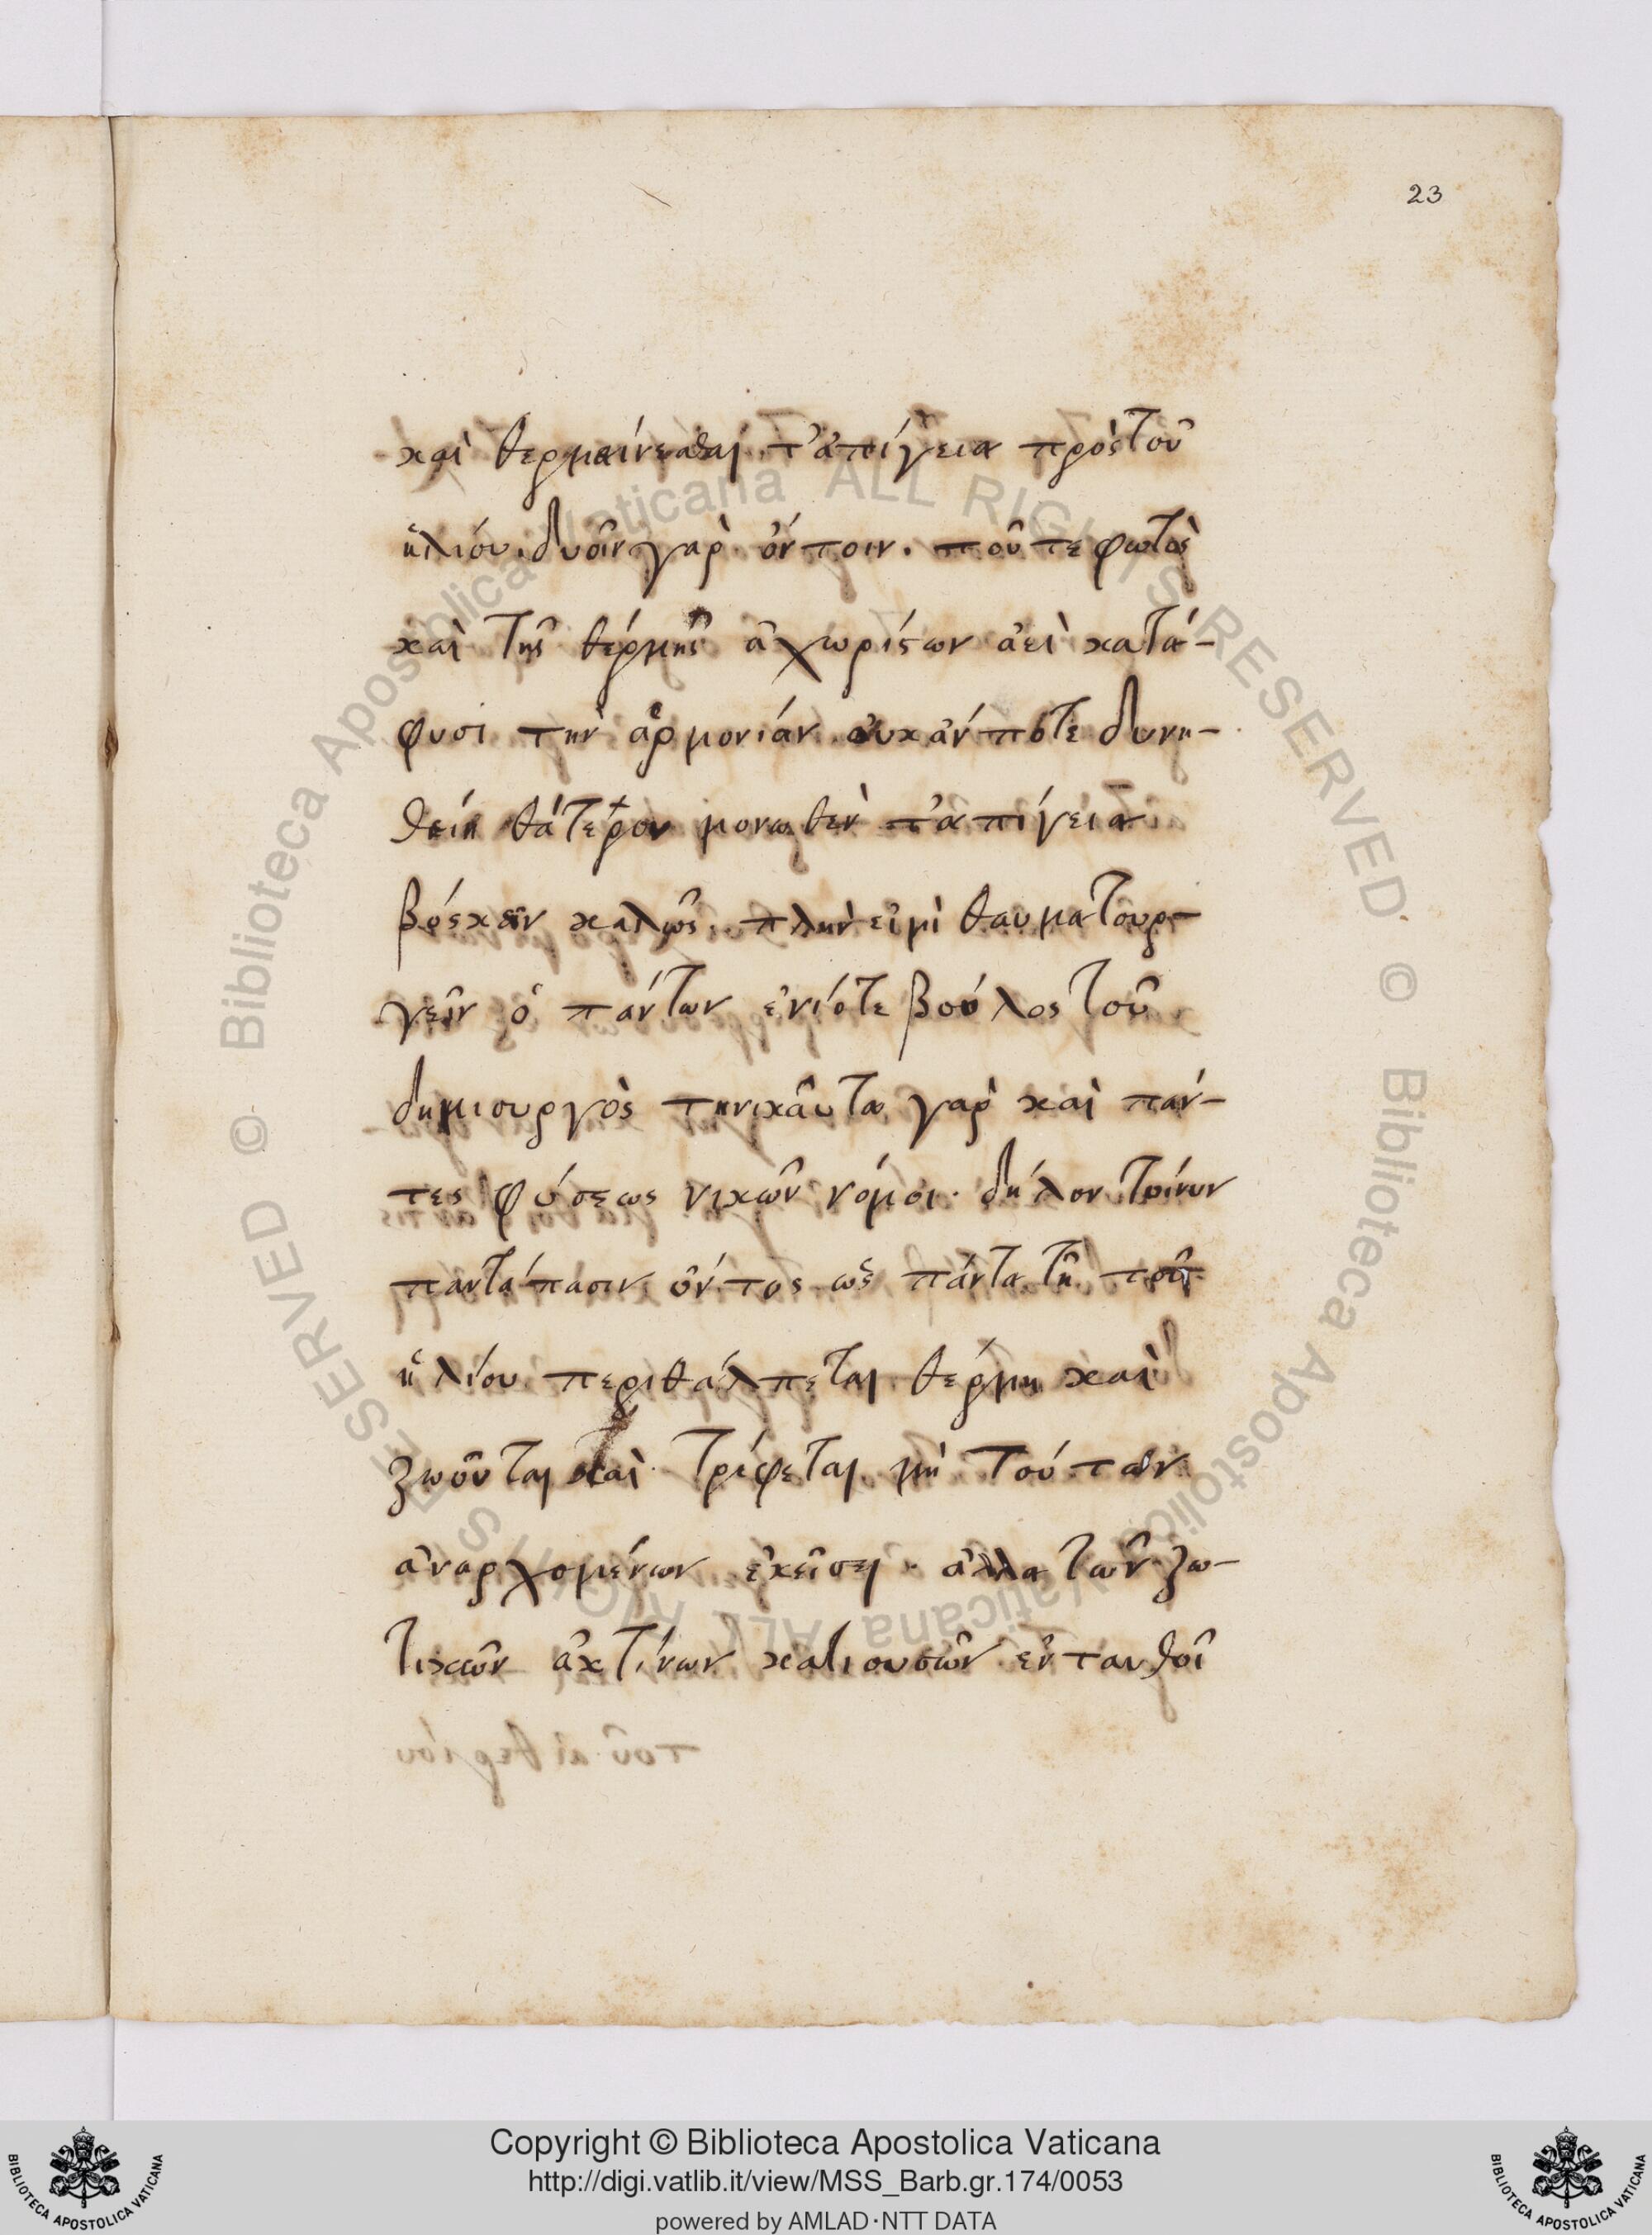 23
καὶ θερμαίνεσθαι τ᾽ἀπίγεια πρὸς τοῦ
ἡλιόυ. δυοῖν γαρ̀ ὄντοιν. τοῦ τε φωτὸς
καὶ τῆς θέρμης ἀχωρίστων ἀεὶ κατά-
φυσι την ἁρμονιάν ουκ ἀν ποτε δυνη-
θείη θάτερον μονωθεν τ᾽ἀπίγεια
βόσκειν καλῶς. πλην εἰ μὶ θαυματουρ-
γεῖν ὁ πάντων ἐνίοτε βούλοιτο ὁ
δημιουργὸς τηνικᾶυτα γαρ καὶ πάν-
τες φύσεως νικῶν νόμοι. δήλον τοίνυν
παντάπασιν ὄντος ὡς πάντα τῆ τοῦ
ἡλίου περιθάλπεται θέρμη καὶ
ζωοῦται καὶ τρέφεται μὴ τούτων
ἀναρχομένων ἐκεῖσαι. ἀλλα τῶν ζω-
τικῶν ἀκτίνων κατιουσῶν ἐνταυθοῖ
Copyright © Biblioteca Apostolica Vaticana
http://digi.vatlib.it/view/MSS_Barb.gr.174/0053
powered by AMLAD·NTT DATA
BIBLIOTECA APOSTOLICA VATICANA
BIBLIOTECA APOSTOLICA VATICANA
© Biblioteca Apostolica Vaticana ALL RIGHTS RESERVED © Biblioteca Apostolica Vaticana ALL RIGHTS RESERVED